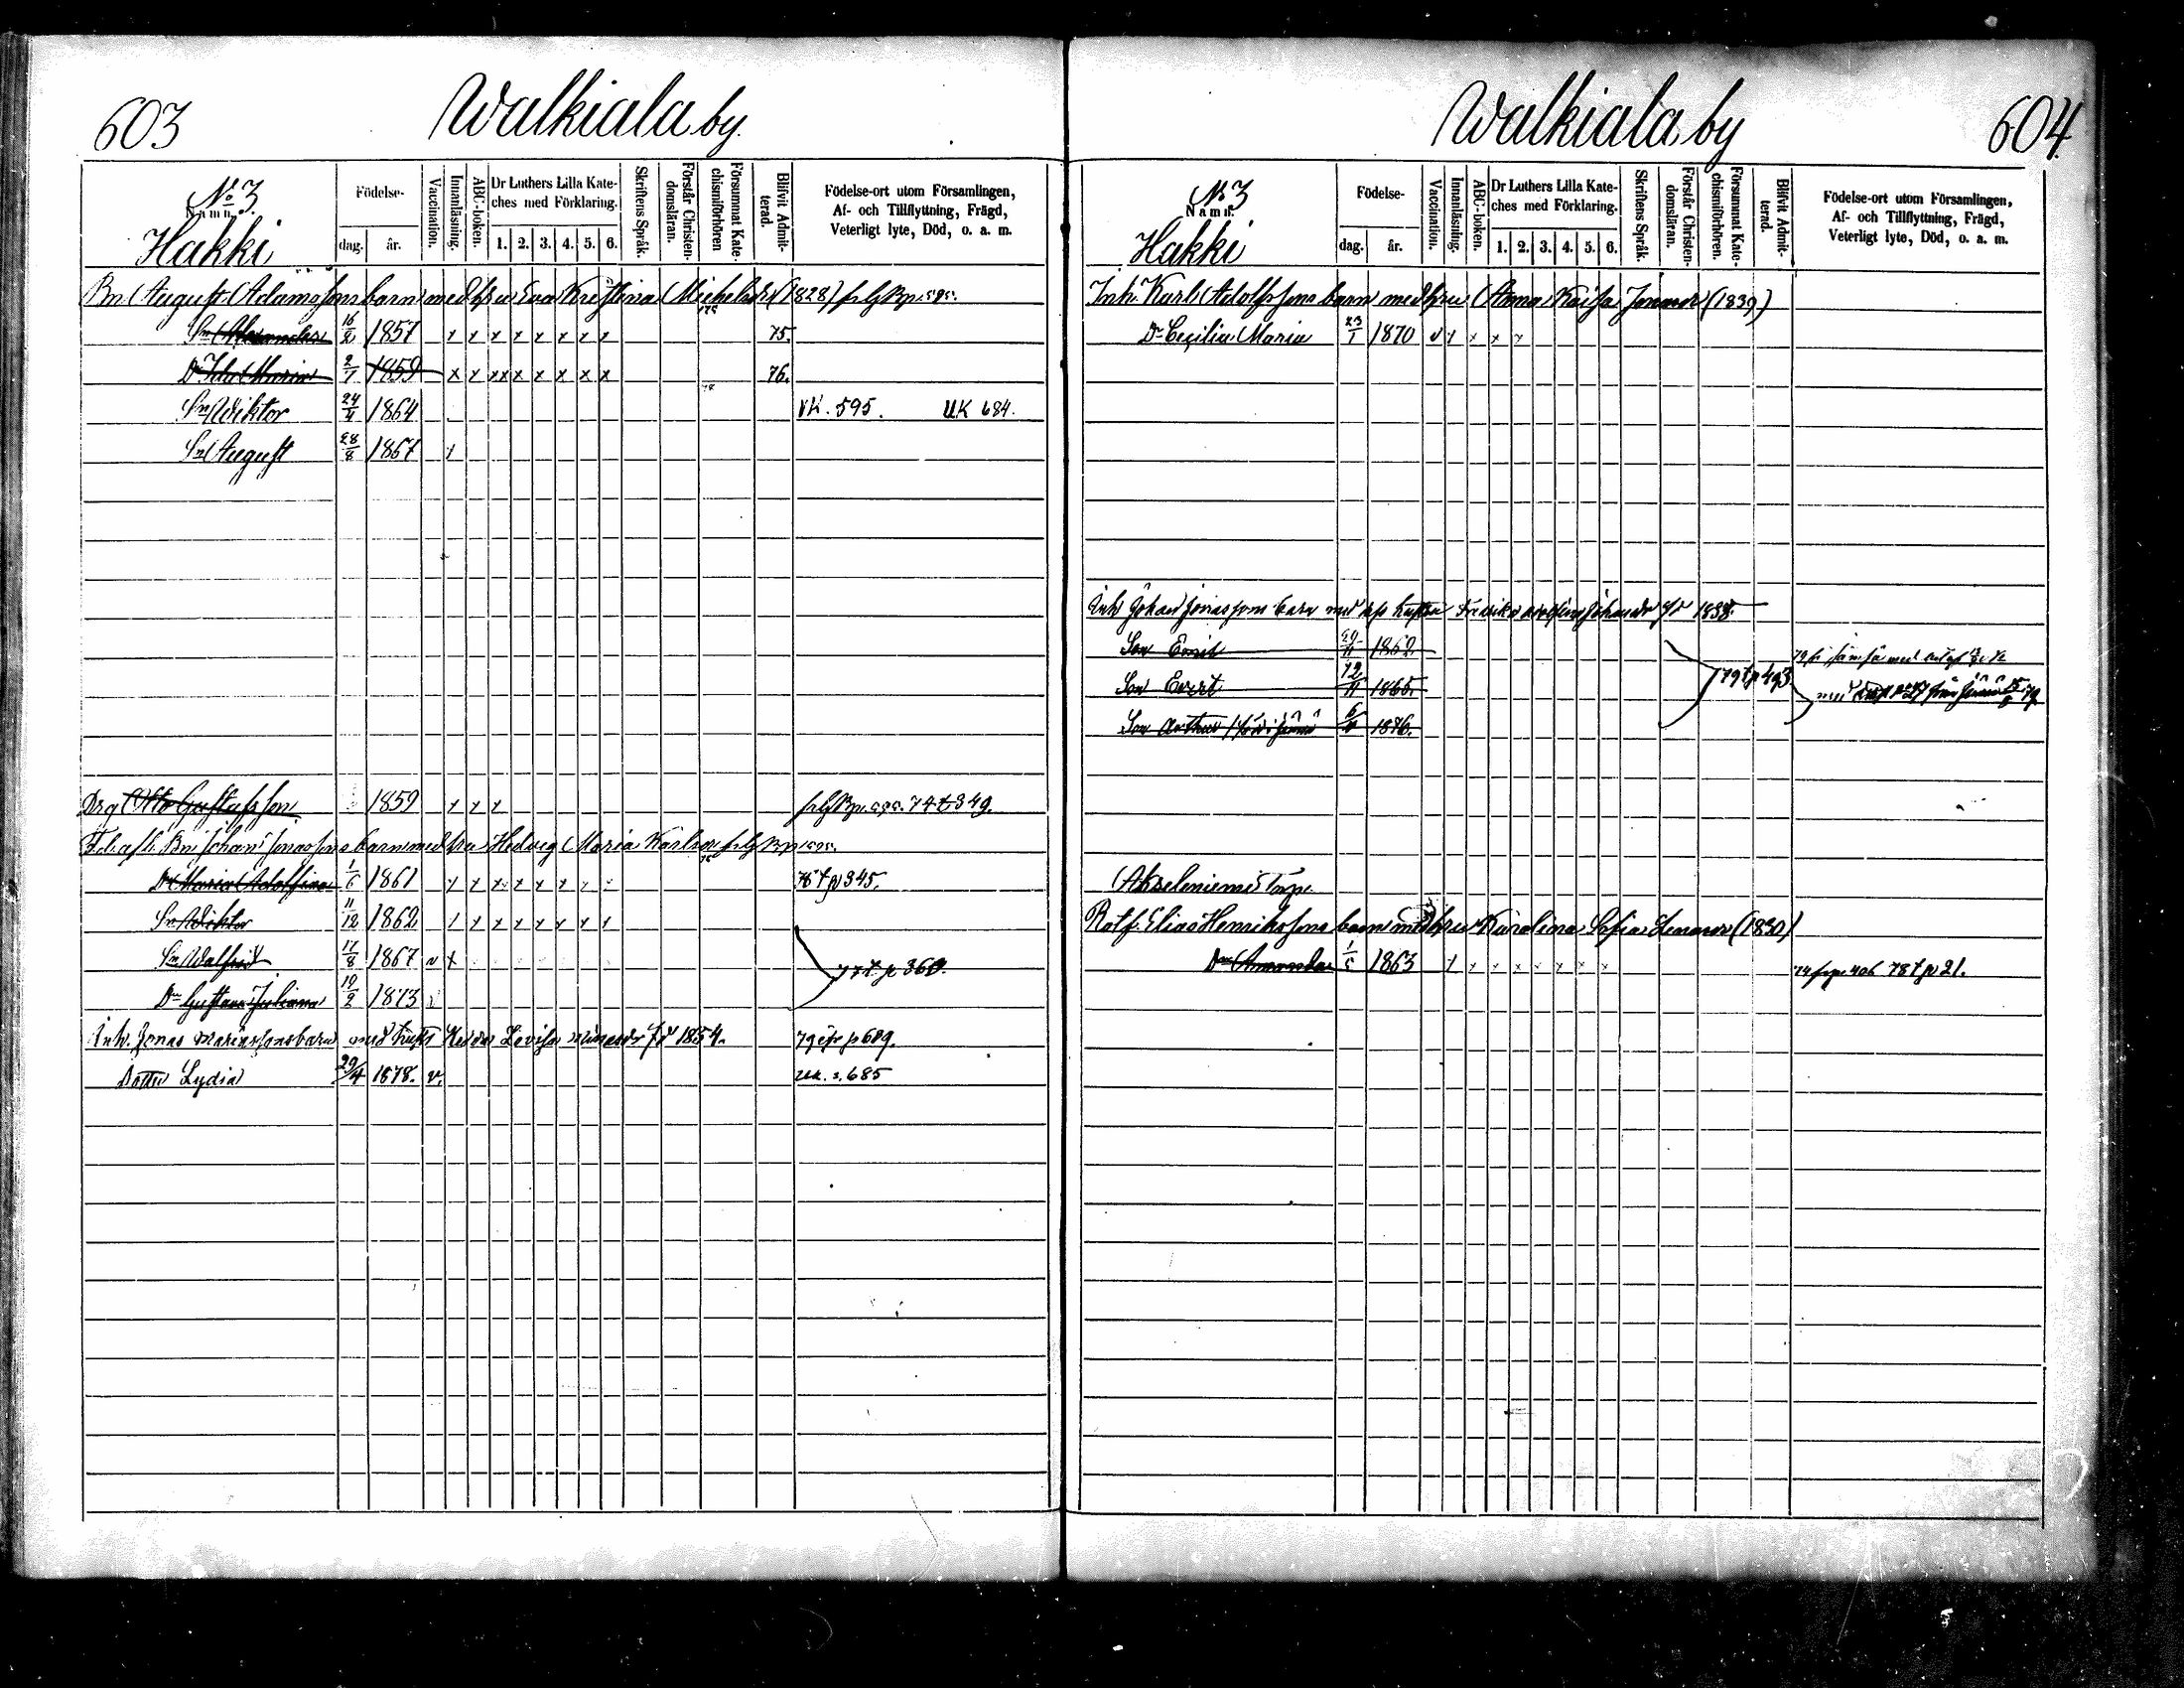 603
Walkiala by.
No 3
Namn.
Hakki
Födelse-
dag. år.
Vaccination.
Innanläsning.
ABC-boken.
Dr Luthers Lilla Kate-
ches med Förklaring.
1. 2. 3. 4. 5. 6.
Skriftens Språk.
Förstår Christen-
domsläran.
Försummat Kate-
chismiförhören
Blifvit Admit-
terad.
Födelse-ort utom Församlingen,
Af- och Tillflyttning, Frägd,
Veterligt lyte, Död, o. a. m.
Bn August Adamssons barn med hru Eva Kristina Michelsdr (1828)
Sn Alexander 16/2 1857 x x x x x x x x 75.
Dr Ida Maria 2/7 1859 x x x x x x x x x 76.
Sn Wiktor 24/4 1864 VK. 595. UK 684.
Sn August 28/8 1867 x
Drg Otto Gustafsson 1859 x x x 74 t 349.
Bn Johan Jonassons barn med hru Hedvig Maria Karlsdr
Dr Maria Adolfina 1/6 1861 x x x x x x x x 78 t p 345.
Sn Wiktor 11/12 1862 x x x x x x x x
Sn Walfrid 17/8 1867 v x
77 t. p 360.
Dr Gustava Juliana 10/2 1873 v
Inh. Jonas barn med Hedda Lovisa fd 1854. 79 p 689.
Dotter Lydia 29/4 1878. v. s. 685
604.
Walkiala by
No 3
Namn.
Hakki
Födelse-
dag. år.
Vaccination.
Innanläsning.
ABC-boken.
Dr Luthers Lilla Kate-
ches med Förklaring.
1. 2. 3. 4. 5. 6.
Skriftens Språk.
Förstår Christen-
domsläran.
Försummat Kate-
chismiförhören.
Blifvit Admit-
terad.
Födelse-ort utom Församlingen,
Af- och Tillflyttning, Frägd,
Veterligt lyte, Död, o. a. m.
Inh. Karl Adolfssons barn med hru Anna Kaisa Jonasdr (1839)
Dr Cecilia Maria 23/1 1870 v x x x x
Inh Johan Jonassons barn med hustru Fredrika 1838.
Son Emil 1862
Son Evert 12/11 1865.
79 t p 493
Son Arthur 1876.
Akseleniemi Torp.
Rotf. Elias Henrikssons barn med hru Karolina Sofia (1830)
Dr Amanda 1/5 1863 x x x x x x x x 406 78 t p 21.